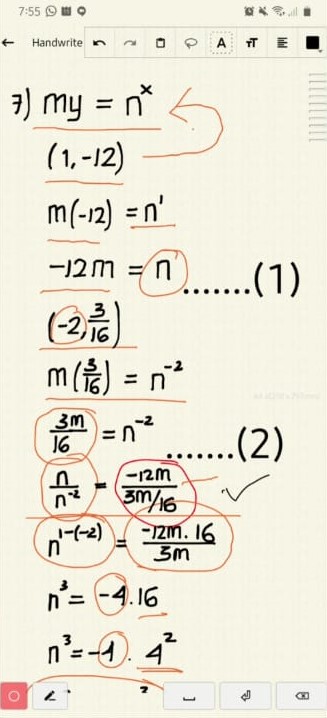 7:55
Handwrite A TT
7) my = n^x
(1,-12)
m(-12) = n^1
-12m = n .......(1)
(-2, 3/16)
m(3/16) = n^-2
3m/16 = n^-2 .......(2)
n/n^-2 = -12m/3m/16
n^1-(-2) = -12m.16/3m
n^3 = -4.16
n^3 = -1. 4^2
2